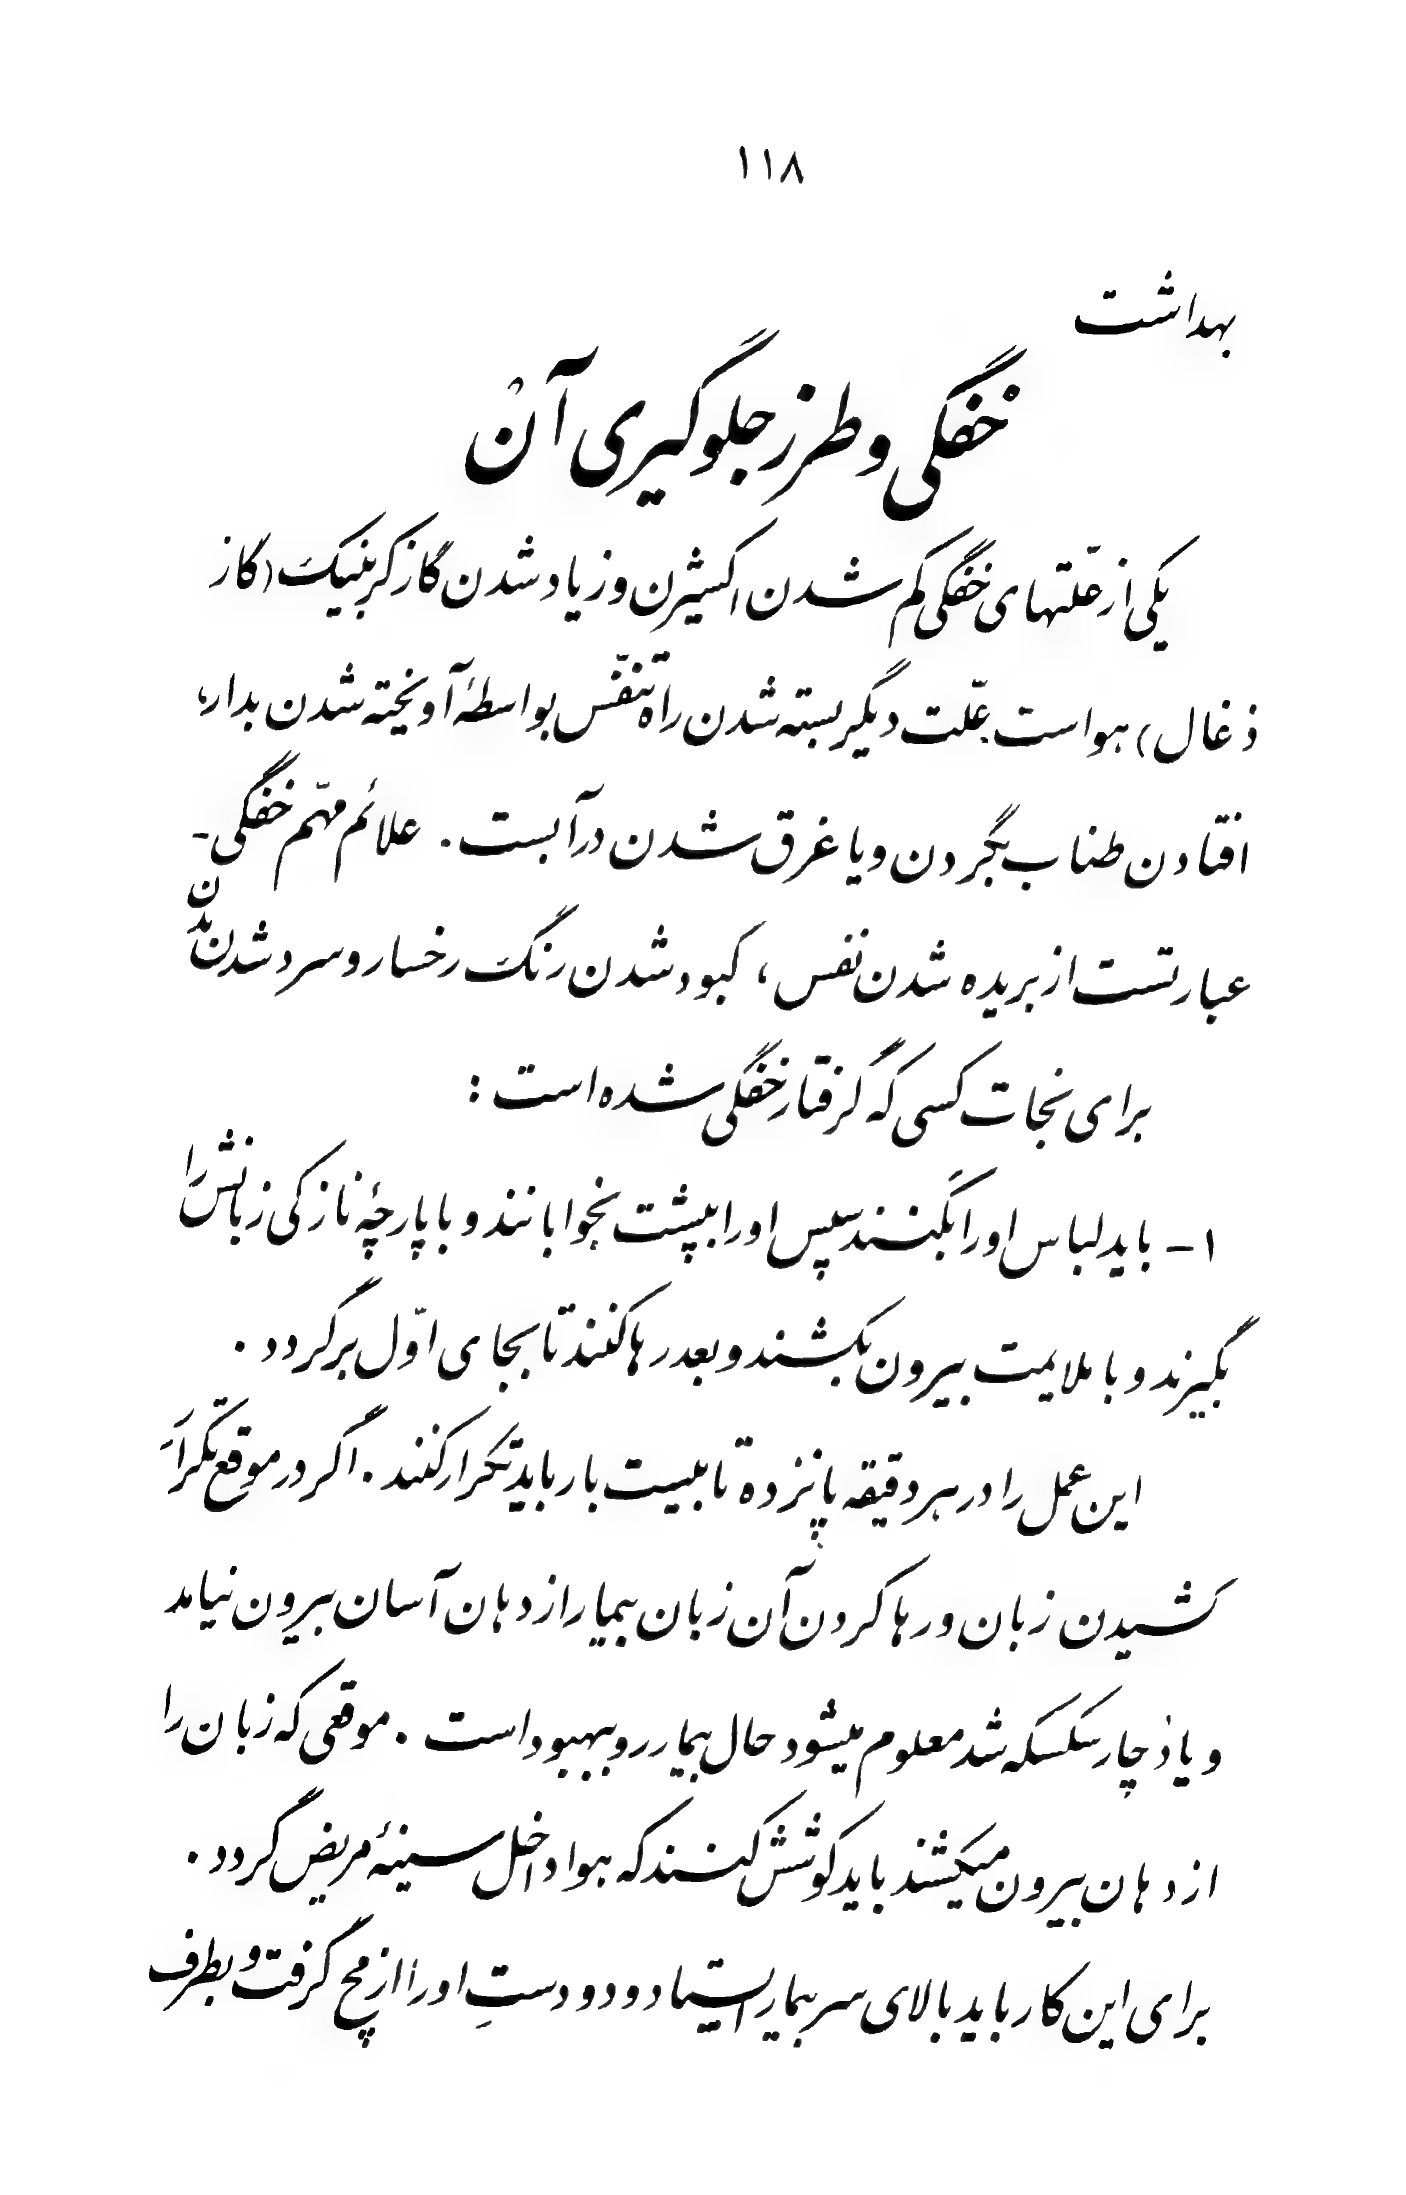 ۱۱۸
بهداشت
خفگی و طرز جلوگیری آن
یکی از علّتهای خفگی کم شدن اکسیژن و زیاد شدن گاز کربنیک (گاز
ذغال) هواست علّت دیگر بسته شدن راه تنفّس بواسطهٔ آویخته شدن بدار،
افتادن طناب بگردن و یا غرق شدن در آبست. علائم مهّم خفگی -
عبارتست از بریده شدن نفس، کبود شدن رنگ رخسار و سرد شدن بدن
برای نجات کسی که گرفتار خفگی شده است :
۱- باید لباس او را بکنند سپس او را بپشت بخوابانند و با پارچهٔ نازکی زبانش را
بگیرند و با ملایمت بیرون بکشند و بعد رها کنند تا بجای اوّل برگردد.
این عمل را در هر دقیقه پانزده تا بیست بار باید تکرار کنند. اگر در موقع تکرارِ
کشیدن زبان و رها کردن آن زبان بیمار از دهان آسان بیرون نیامد
و یا دچار سکسکه شد معلوم میشود حال بیمار رو ببهبود است. موقعی که زبان را
از دهان بیرون میکشند باید کوشش کنند که هوا داخل سینهٔ مریض گردد.
برای این کار باید بالای سر بیمار ایستاد و دو دستِ او را از مچ گرفت و بطرف